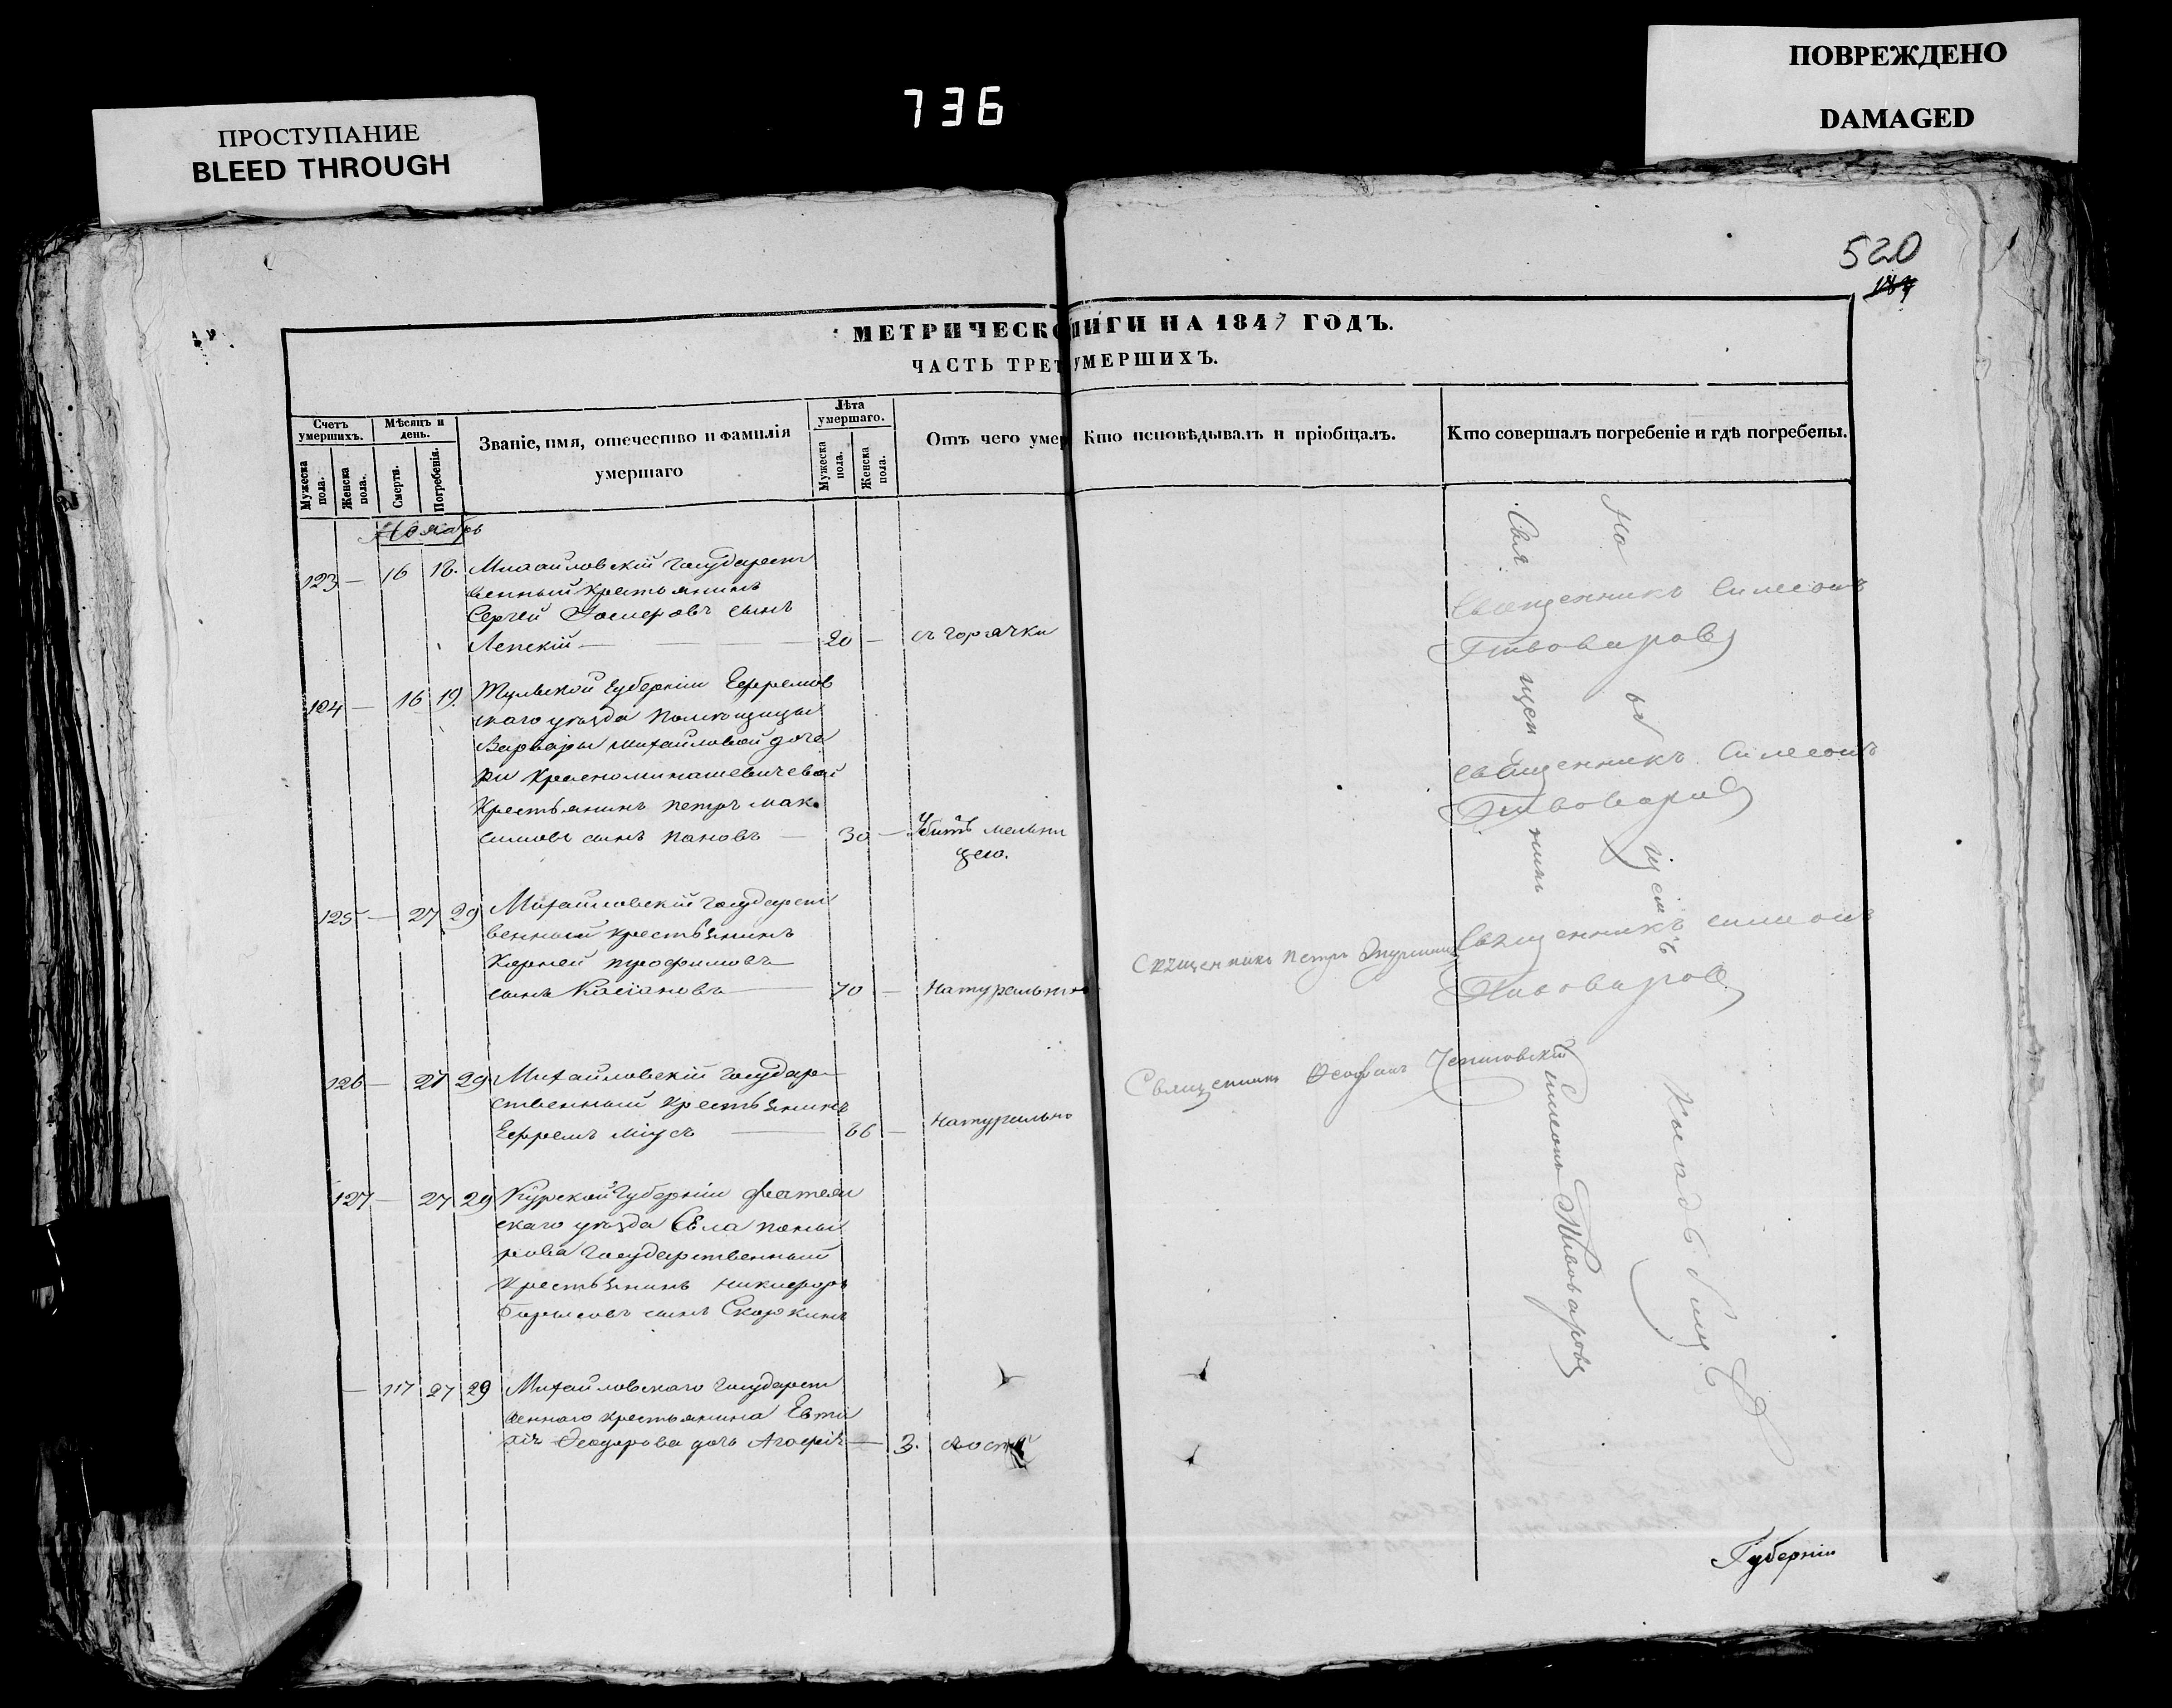 ПРОСТУПАНИЕ
BLEED THROUGH
736
ПОВРЕЖДЕНО
DAMAGED
520
МЕТРИЧЕСКО ИГИ НА 1847 ГОДЪ.
ЧАСТЬ ТРЕТ УМЕРШИХЪ.
Счетъ умершихъ.
Мужеска пола.
Женска пола.
Мѣсяцъ и день.
Смерти.
Погребенія.
Званіе, имя, отечество и фамилія
умершаго
Лѣта умершаго.
Мужеска пола.
Женска пола.
Отъ чего умер
Кто исповѣдывалъ и пріобщалъ.
Кто совершалъ погребеніе и гдѣ погребены.
Ноябрь
123 — 16 18. Михайловскій государст
венный крестьянинъ
Сергей сынъ
Лепскій — 20 — съ горячки
Священникъ Симеонъ
Пивоваровъ
124 — 16 19. Тульской губерніи Ефремов
скаго уѣзда помѣщицы
Варвары Михайловой доче
ри
Крестьянинъ Петръ Мак
симовъ сынъ Пановъ — 30 — Убитъ мельни
цею.
Священникъ Симеонъ
Пивоваровъ
125 — 27 29 Михайловскій государст
венный крестьянинъ
Корней
сынъ Касіановъ — 70 — натурально
Священникъ Петръ
Священникъ Симеонъ
Пивоваровъ
126 — 27 29 Михайловскій государ
ственный крестьянинъ
Ефремъ Міусъ — 66 — натурально
Священникъ Феофанъ
127 — 27 29 Курской губерніи Фатеж
скаго уѣзда Села Поны
рова государственный
крестьянинъ Никифоръ
Борисовъ сынъ Скоркинъ
— 117 27 29 Михайловскаго государст
веннаго крестьянина Евти
хія Феодорова дочь — 3.
На общемъ кладбищѣ
Священникъ Симеонъ Пивоваровъ
Губерніи